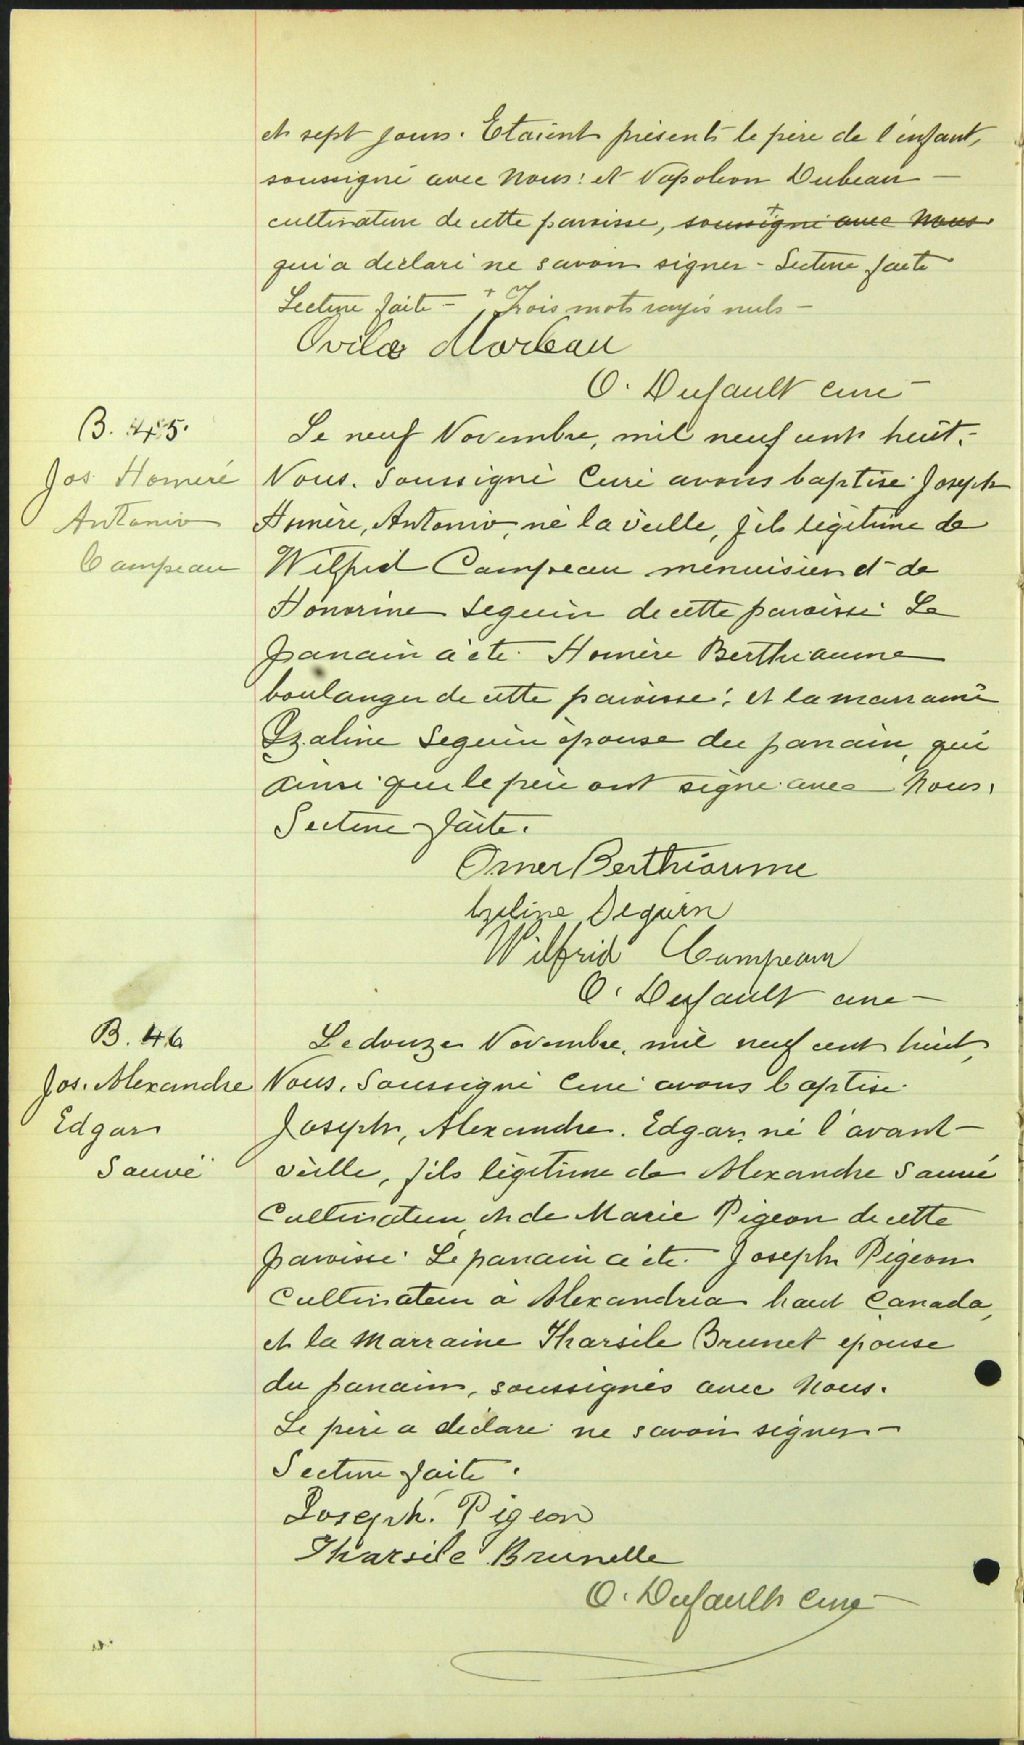 et sept jours. Etaient présents le père de l'enfant,
soussigné avec Nous: et Napoléon Dubeau —
cultivateur de cette paroisse, + soussigné avec Nous
qui a déclaré ne savoir signer - Lecture faite
Lecture faite - + Trois mots rayés nuls -
Ovila Morleau
O. Dufault curé -
B. 45.
Jos Homeré
Antonio
Campeau
Le neuf Novembre, mil neuf cent huit,-
Nous. Soussigné Curé avons baptisé Joseph
Homère, Antonio, né la veille, fils légitime de
Wilfrid Campeau menuisier et de
Honorine Seguin de cette paroisse. Le
parrain a été Homère Berthiaume
boulanger de cette paroisse; et la marraine
Izaline Seguin épouse du parrain, qui
ainsi que le père ont signé avec Nous.
Lecture faite.
Omer Berthiaume
Izeline Seguin
Wilfrid Campeau
O. Dufault curé -
B. 46
Jos. Alexandre
Edgar
Sauvé
Le douze Novembre, mil neuf cent huit,
Nous. Soussigné Curé avons baptisé
Joseph, Alexandre. Edgar, né l'avant-
veille, fils légitime de Alexandre Sauvé
Cultivateur, et de Marie Pigeon de cette
paroisse. Le parrain a été Joseph Pigeon
Cultivateur à Alexandria haut Canada,
et la Marraine Tharsile Brunet épouse
du parrain, soussignés avec Nous.
Le père a déclaré ne savoir signer -
Lecture faite.
Joseph. Pigeon
Tharsile Brunelle
O. Dufault Curé